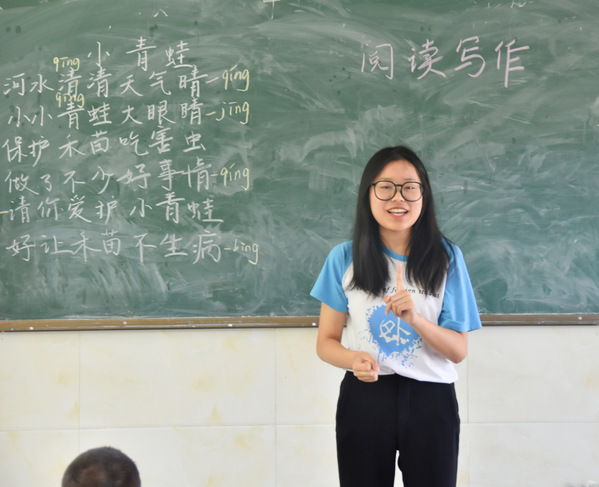 小青蛙
qīng
河水清清天气晴-qíng
qīng
小小青蛙大眼睛-jīng
保护禾苗吃害虫
做了不少好事情-qíng
请你爱护小青蛙
好让禾苗不生病-bìng
阅读写作
外